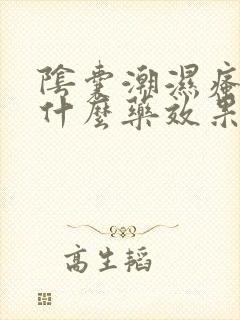 陰囊潮濕瘙
什麼藥效果
高生韜